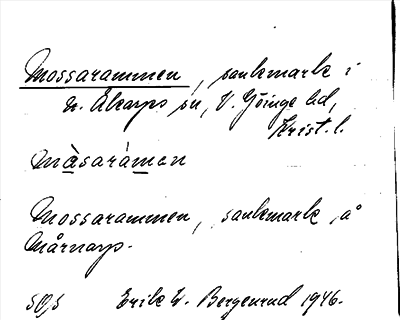 Mossarammen, sankmark i
n. Åkarps sn, V. Göinge hd,
Krist. l.
màsaráman
Mossarammen, sankmark, å
Mårnarp.
Erik W. Bergenrud 1946.